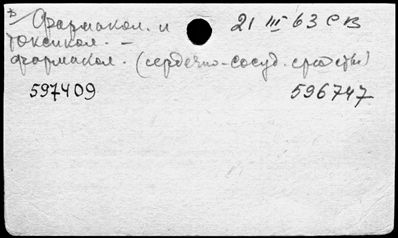 Фармакол. и 21 III 63 СВ
токсикол. –
фармакол. (сердечно-сосуд. средства)
597409 596747